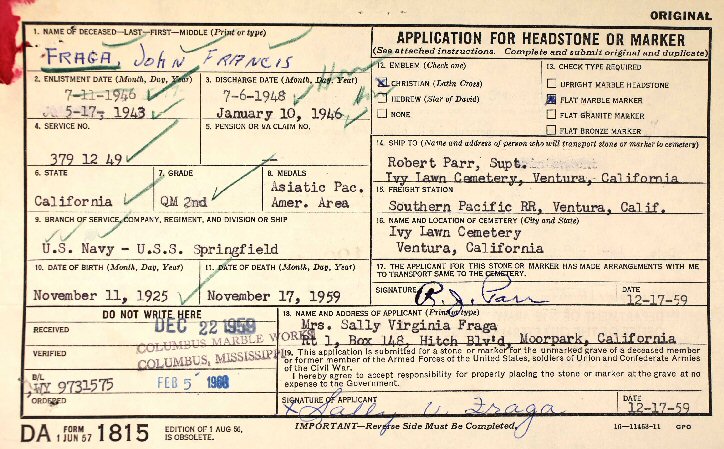 ORIGINAL
1. NAME OF DECEASED—LAST—FIRST—MIDDLE (Print or type)
FRAGA, JOHN FRANCIS
APPLICATION FOR HEADSTONE OR MARKER
(See attached instructions. Complete and submit original and duplicate)
2. ENLISTMENT DATE (Month, Day, Year)
7-11-1946
5-17-1943
3. DISCHARGE DATE (Month, Day, Year)
7-6-1948
January 10, 1946
12. EMBLEM (Check one)
X CHRISTIAN (Latin Cross)
HEBREW (Star of David)
NONE
13. CHECK TYPE REQUIRED
UPRIGHT MARBLE HEADSTONE
FLAT MARBLE MARKER
FLAT GRANITE MARKER
FLAT BRONZE MARKER
4. SERVICE NO.
379 12 49
5. PENSION OR VA CLAIM NO.
-
14. SHIP TO (Name and address of person who will transport stone or marker to cemetery)
Robert Parr, Supt.
Ivy Lawn Cemetery, Ventura, California
6. STATE
California
7. GRADE
QM 2nd
8. MEDALS
Asiatic Pac.
Amer. Area
15. FREIGHT STATION
Southern Pacific RR, Ventura, Calif.
9. BRANCH OF SERVICE, COMPANY, REGIMENT, AND DIVISION OR SHIP
U.S. Navy - U.S.S. Springfield
16. NAME AND LOCATION OF CEMETERY (City and State)
Ivy Lawn Cemetery
Ventura, California
10. DATE OF BIRTH (Month, Day, Year)
November 11, 1925
11. DATE OF DEATH (Month, Day, Year)
November 17, 1959
17. THE APPLICANT FOR THIS STONE OR MARKER HAS MADE ARRANGEMENTS WITH ME
TO TRANSPORT SAME TO THE CEMETERY.
SIGNATURE
R. J. Parr
DATE
12-17-59
DO NOT WRITE HERE
RECEIVED
DEC 22 1959
COLUMBUS MARBLE WORKS
COLUMBUS, MISSISSIPPI
VERIFIED
B/L
WY 9731575
FEB 5
ORDERED
18. NAME AND ADDRESS OF APPLICANT (Print or type)
Mrs. Sally Virginia Fraga
Rt 1, Box 148, Hitch Blv'd, Moorpark, California
19. This application is submitted for a stone or marker for the unmarked grave of a deceased member
or former member of the Armed Forces of the United States, soldiers of Union and Confederate Armies
of the Civil War.
I hereby agree to accept responsibility for properly placing the stone or marker at the grave at no
expense to the Government.
SIGNATURE OF APPLICANT
X Sally V. Fraga
DATE
12-17-59
DA FORM 1 JUN 57 1815
EDITION OF 1 AUG 56,
IS OBSOLETE.
IMPORTANT—Reverse Side Must be Completed.
16—11453-11 GPO